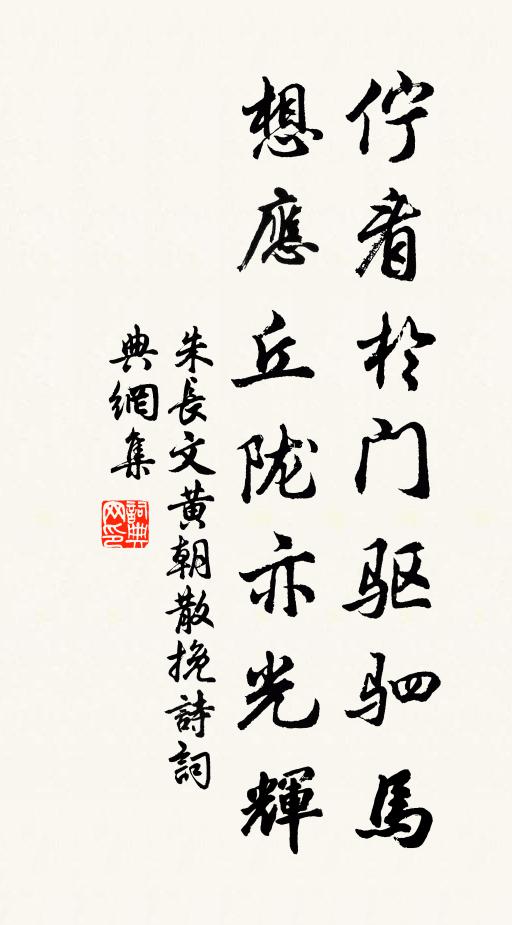 佇看於门驱驷馬
想應丘陇亦光輝
朱長文黄朝散挽詩詞
典網集
詞典
网印